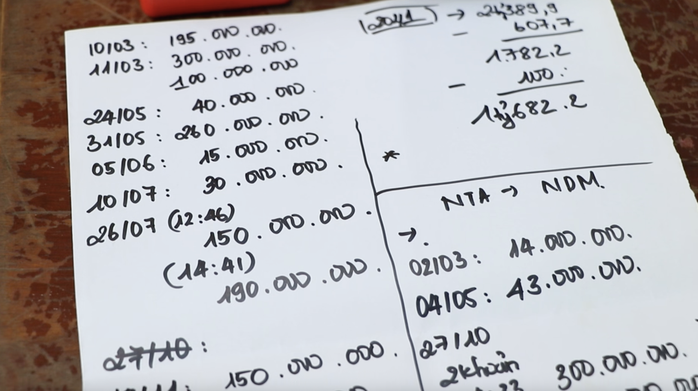 10/03: 195.000.000.
11/03: 300.000.000.
100.000.000
24/05: 40.000.000.
31/05: 260.000.000.
05/06: 15.000.000.
10/07: 30.000.000.
26/07 (12:46)
150.000.000.
(14:41)
190.000.000.
27/10:
150.000.000.
2041 → 2tỷ389,9
- 607,7
1782,2
- 100.
1tỷ682.2
*
NTA → NDM.
→.
02/03: 14.000.000.
04/05: 43.000.000.
27/10
2 khoản
300.000.000.